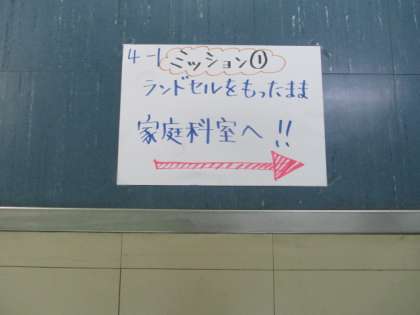 4-1 ミッション①
ランドセルをもったまま
家庭科室へ!!